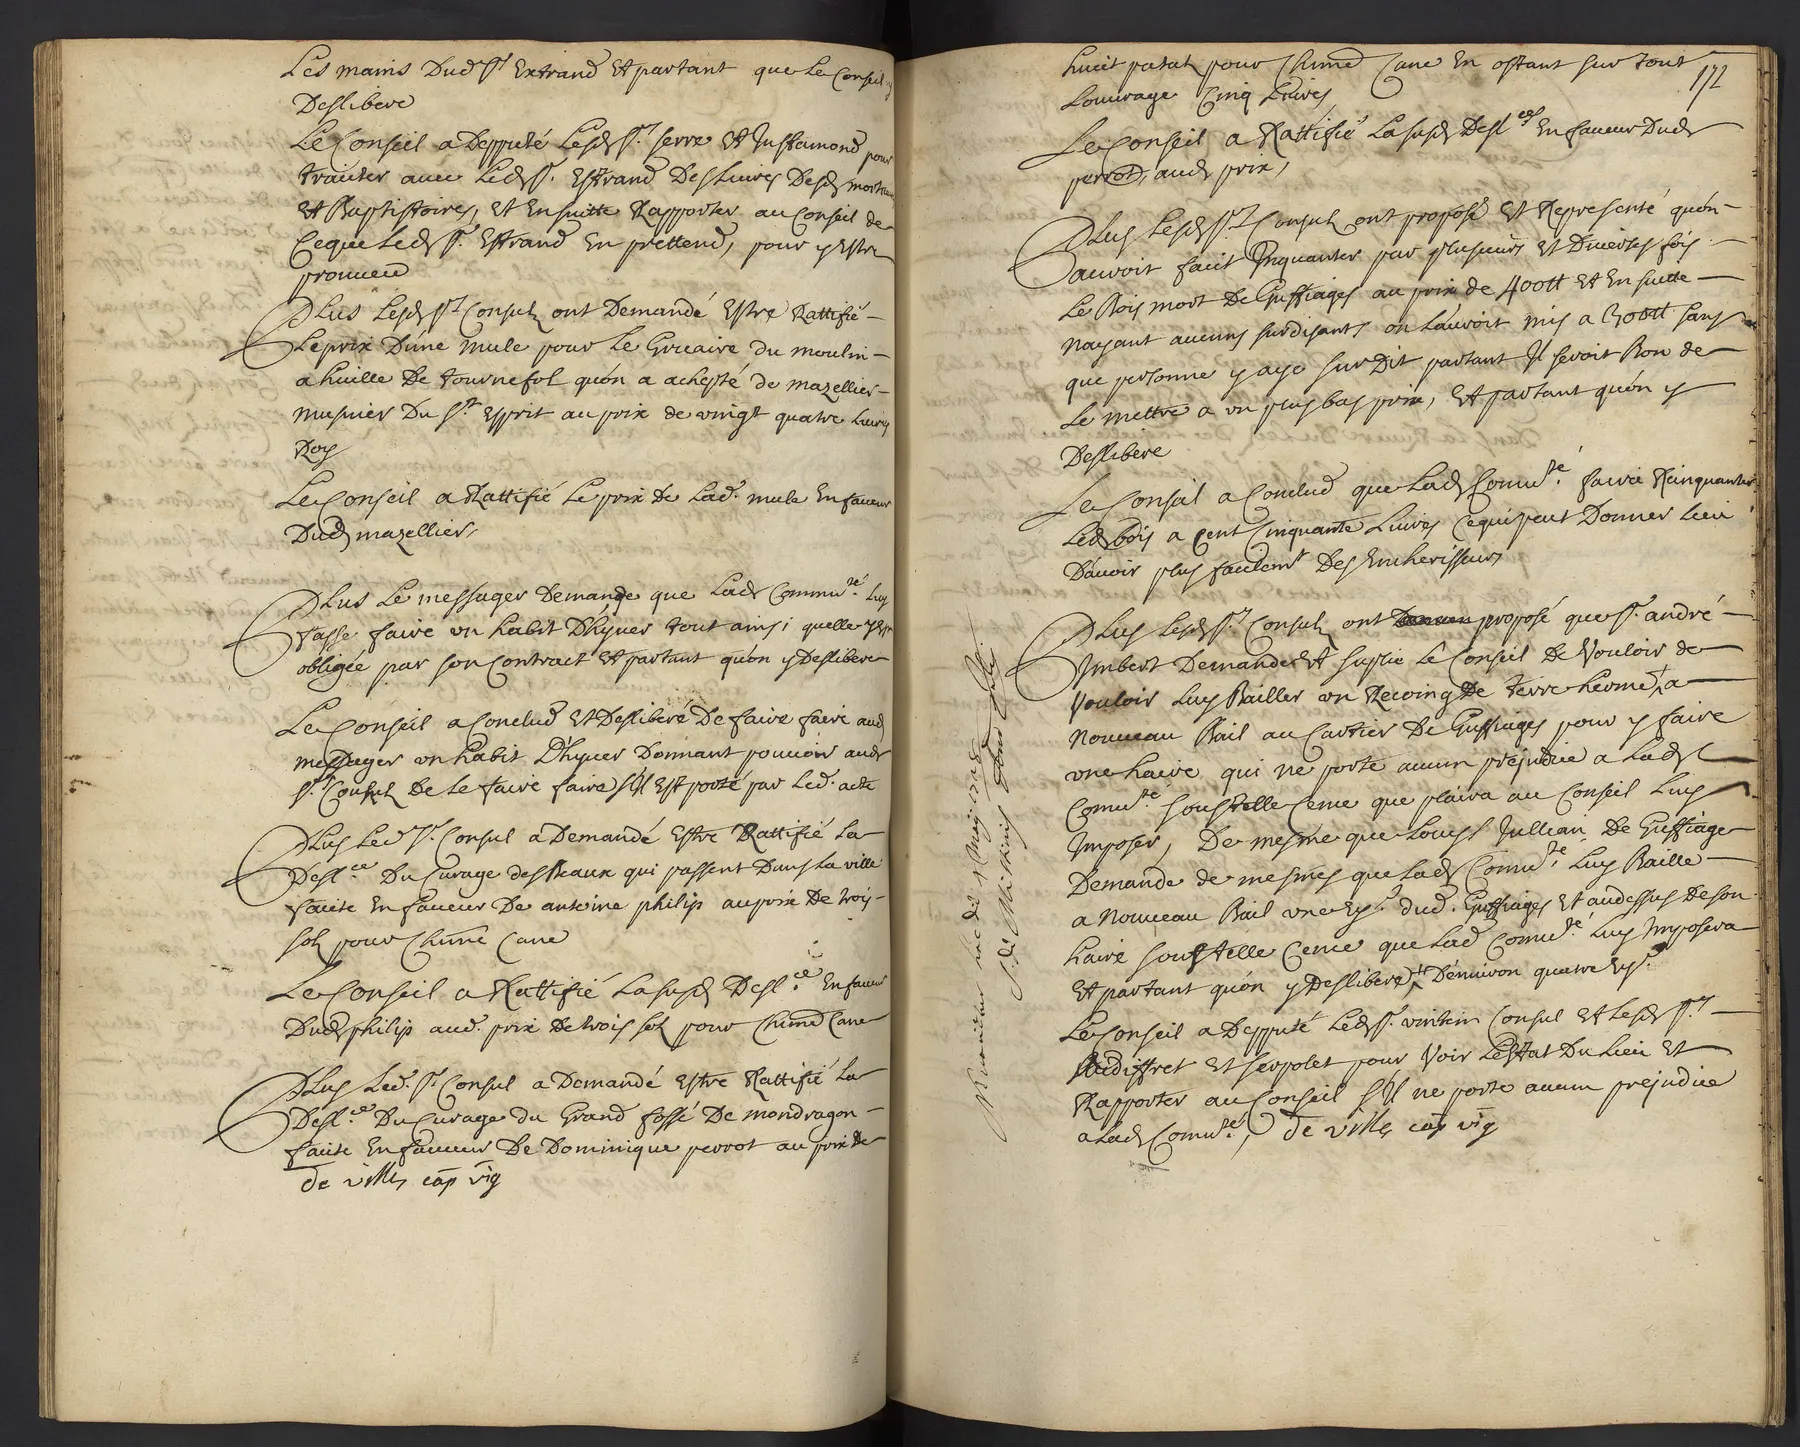 Les mains Dud Sr Extrand Et partant que Le Conseil y
Deslibere
Le Conseil a Depputé Lesd Srs serre Et Justamond pour
traitter avec Led Sr. Estrand Des Livres Desd mortuaires
Et Baptistoires, Et Ensuitte Rapporter au Conseil de
Ceque Led Sr. Estrand En prettend, pour y Estre
prouveu
Plus Lesd Srs Consulz ont Demandé Estre Rattifié
Le prix Dune mule pour Le Gruaire du moulin
a huille De tournefol quon a achepté de mazellier
musnier Du St Esprit au prix de vingt quatre Livres
Roy
Le Conseil a Rattifié Le prix De Lad. mule En faveur
Dud mazellier,
Plus Le messager Demande que Lad Commuté. Luy
fasse faire un habit D'hyver tout ainsi quelle y est
obligée par son Contract Et partant quon y Deslibere
Le Conseil a Conclud Et Desliberé De faire faire aud
messager un habit D'hyver Donnant pouvoir ausd
Srs Consulz De Le faire faire S'il Est porté par Led. acte
Plus Led Sr. Consul a Demandé Estre Rattifié La
Deslce Du Curage des Beaux qui passent Dans La ville
faitte En faveur De antoine philip au prix De trois
solz pour Chune Cane
Le Conseil a Rattifié La susd Deslce. En faveur
Dud philip aud. prix De trois solz pour Chune Cane
Plus Led. Sr. Consul a Demandé Estre Rattifié La
Deslce Du Curage du Grand fossé De mondragon
faitte En faveur De Dominique perrot au prix De
De ville cap vig
172
huict patatz pour Chune Cane En ostant sur tout
Louvrage Cinq Livres
Le Conseil a Rattifié La susd Deslce En faveur Dud
perrot, aud prix,
Plus Lesd Srs Consulz ont proposé Et Representé quon
auroit fait Inquanter par plusieurs Et Diverses fois
Le Bois mort De Guffiages au prix de 400tt Et Ensuitte
nayant aucuns surdisants on Lauroit mis a 300tt sans
que personne y aye surdit partant Il seroit Bon de
Le mettre a un plus bas prix, Et partant quon y
Deslibere
Le Conseil a Conclud que Lad Comuté. faira Reinquanter
Led bois a Cent Cinquante Livres Cequi peut Donner Lieu
D'avoir plus facilemt Des Encherisseurs
Plus Lesd Srs Consulz ont proposé que Sr. andré
Imbert Demande Et suplie Le Conseil De Vouloir de
Vouloir Luy Bailler un Recoing De terre herme a
Nouveau Bail au Cartier De Guffiages pour y faire
une haire qui ne porte aucun prejudice a Lad
Comuté. soubs telle Cence que plaira au Conseil Luy
Imposer, De mesme que Louys Jullian De Guffiages
Demande de mesmes que Lad Comuté. Luy Baille
a Nouveau Bail une dud. Guffiages Et audessus De son
haire soubs telle Cence que Lad Comuté. Luy Imposera
Et partant quon y Deslibere, D'environ quatre
Le Conseil a Depputé Led Sr. vintein Consul Et Lesd Srs
Audiffret Et serpolet pour Voir Lestat Du Lieu Et
Rapporter au Conseil S'il ne porte aucun prejudice
a Lad Comuté., De ville cap vig